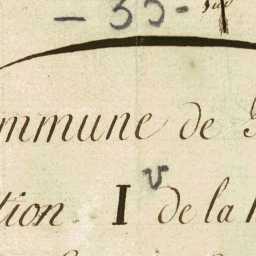 - 35 -
mmune de
tion I v de la